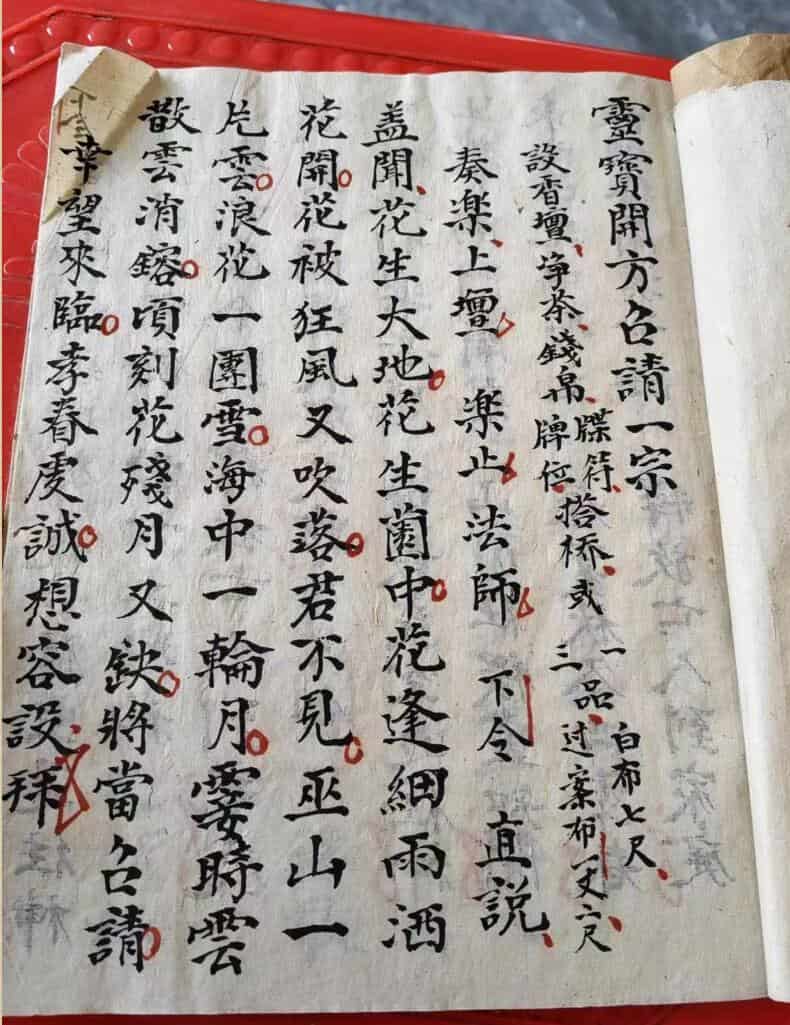 靈寶開方召請一宗
設香壇、净茶、錢帛、牒符、牌位、搭桥、或一三品、白布七尺、过案布一丈二尺
奏楽、上壇、楽止、法師、下令 直説、
盖聞、花生大地。花生園中。花逢細雨洒
花開。花被狂風又吹落。君不見。巫山一
片雲。浪花一團雪。海中一輪月。霎時雲
散雲消鎔。頃刻花殘月又缺。將當召請。
幸望來臨。孝眷虔誠。想容設拜